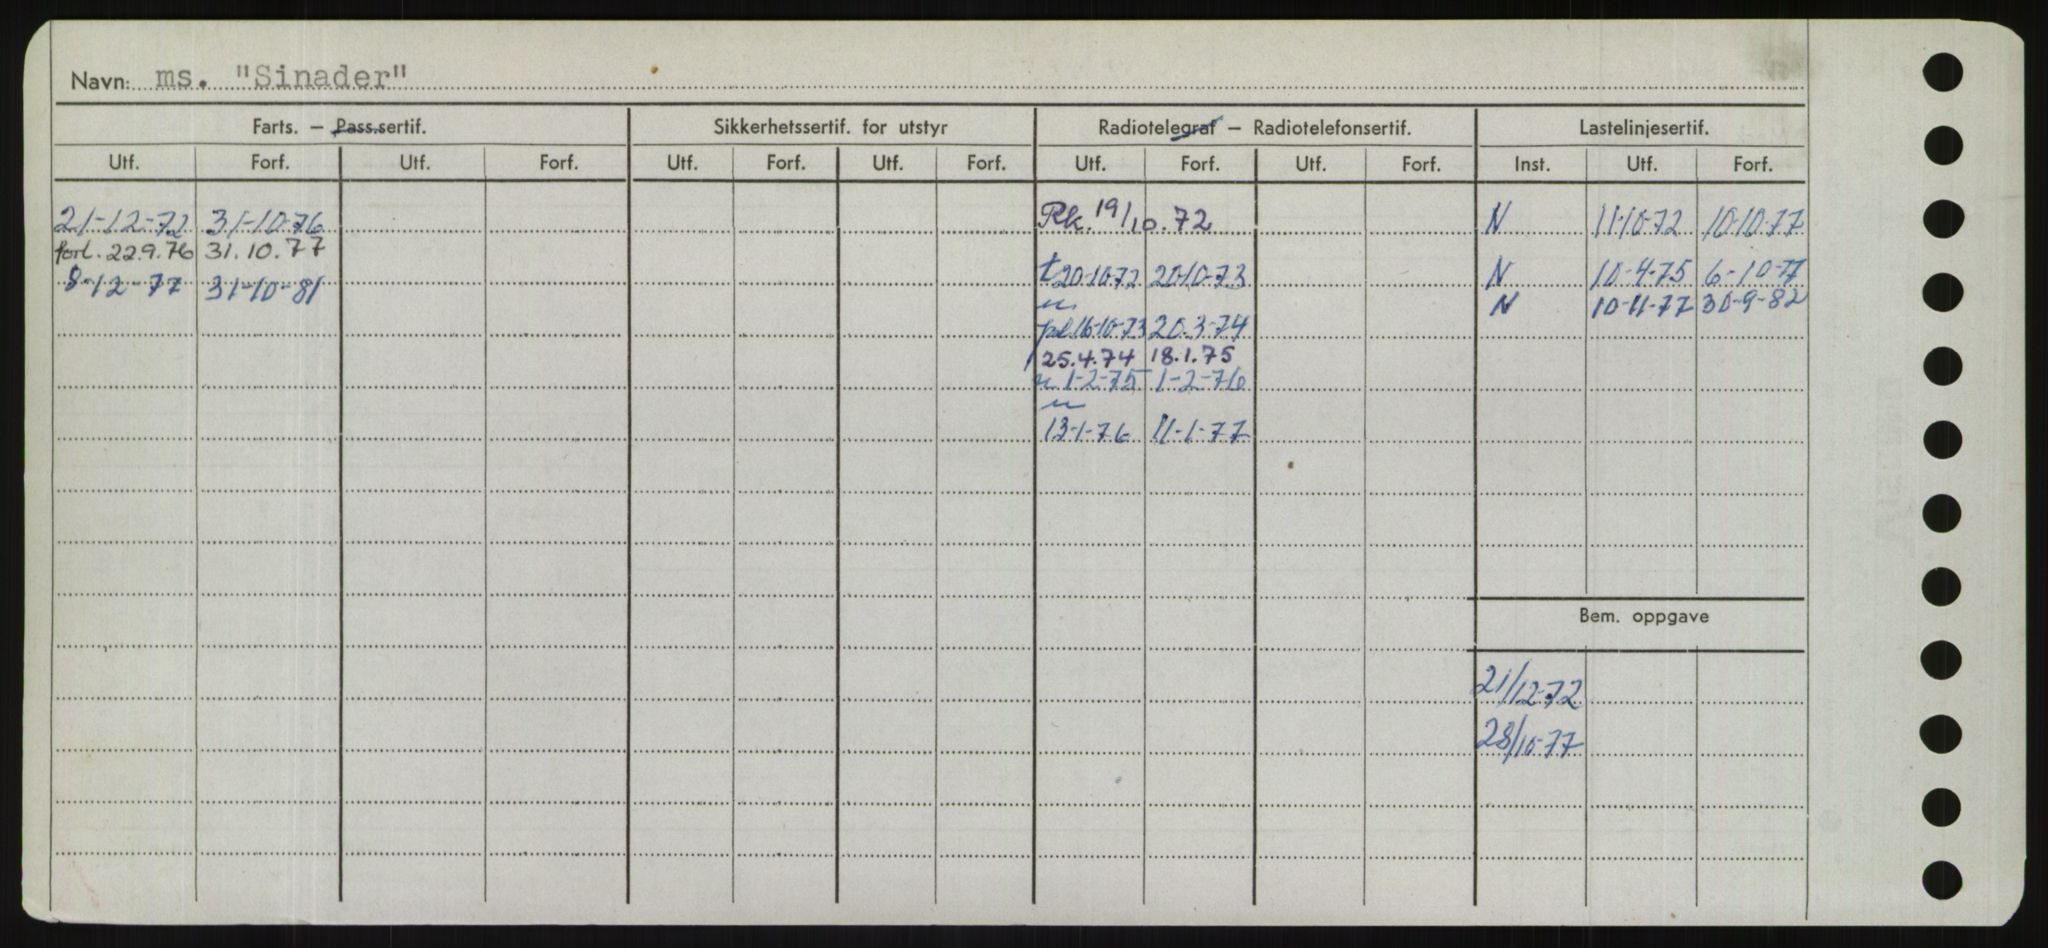 Navn: ms. "Sinader"
Farts. – Pass.sertif. Sikkerhetssertif. for utstyr Radiotelegraf – Radiotelefonsertif. Lastelinjesertif.
Utf. Forf. Utf. Forf. Utf. Forf. Utf. Forf. Utf. Forf. Utf. Forf. Inst. Utf. Forf.
21-12-72 31-10-76 Rk. 19/10.72 N 11-10-72 10-10-77
forl. 22.9.76 31.10.77
8-12-77 31-10-81 t 20-10-72 20-10-73 N 10-4-75 6-10-77
N 10-11-77 30-9-82
16-10-73 20.3-74
25.4.74 18.1.75
1-2-75 1-2-76
13-1-76 11-1-77
Bem. oppgave
21/12-72
28/10-77